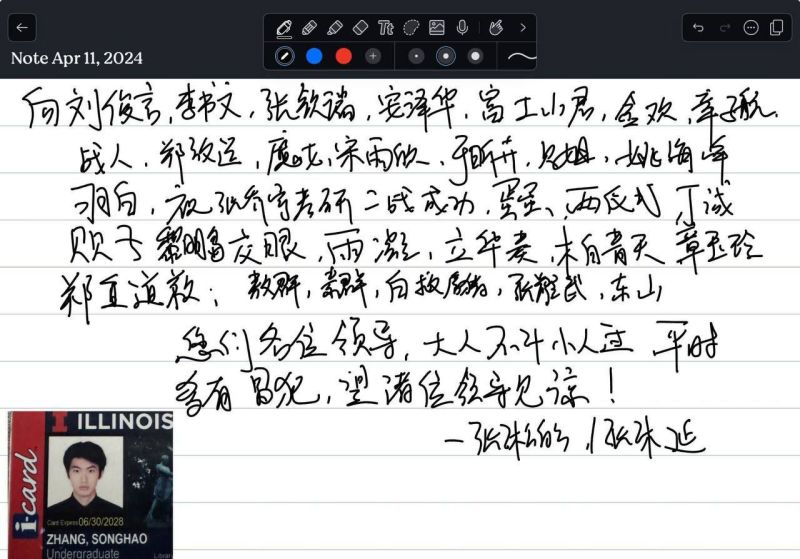 Note Apr 11, 2024
Tt
向刘俊言,李书文,张钦瑞,安泽华,富士山君,金欢,章子航,
战人,郑放运,魔,宋雨欣,于昕卉,贝姐,姚海峰
羽白,祝张乔宇考研二战成功,蛋蛋,两仪式 丁诚
贝丐 黎明忽交眼,雨濛,立华奏,木自青天 章玉玲
郑重道歉:教群,群,白,张耀武,东山
您们各位领导,大人不计小人过 平时
多有冒犯,望诸位领导见谅!
一张松的,张沐延
ILLINOIS
i-card
Card Expires 06/30/2028
ZHANG, SONGHAO
Undergraduate
Librar